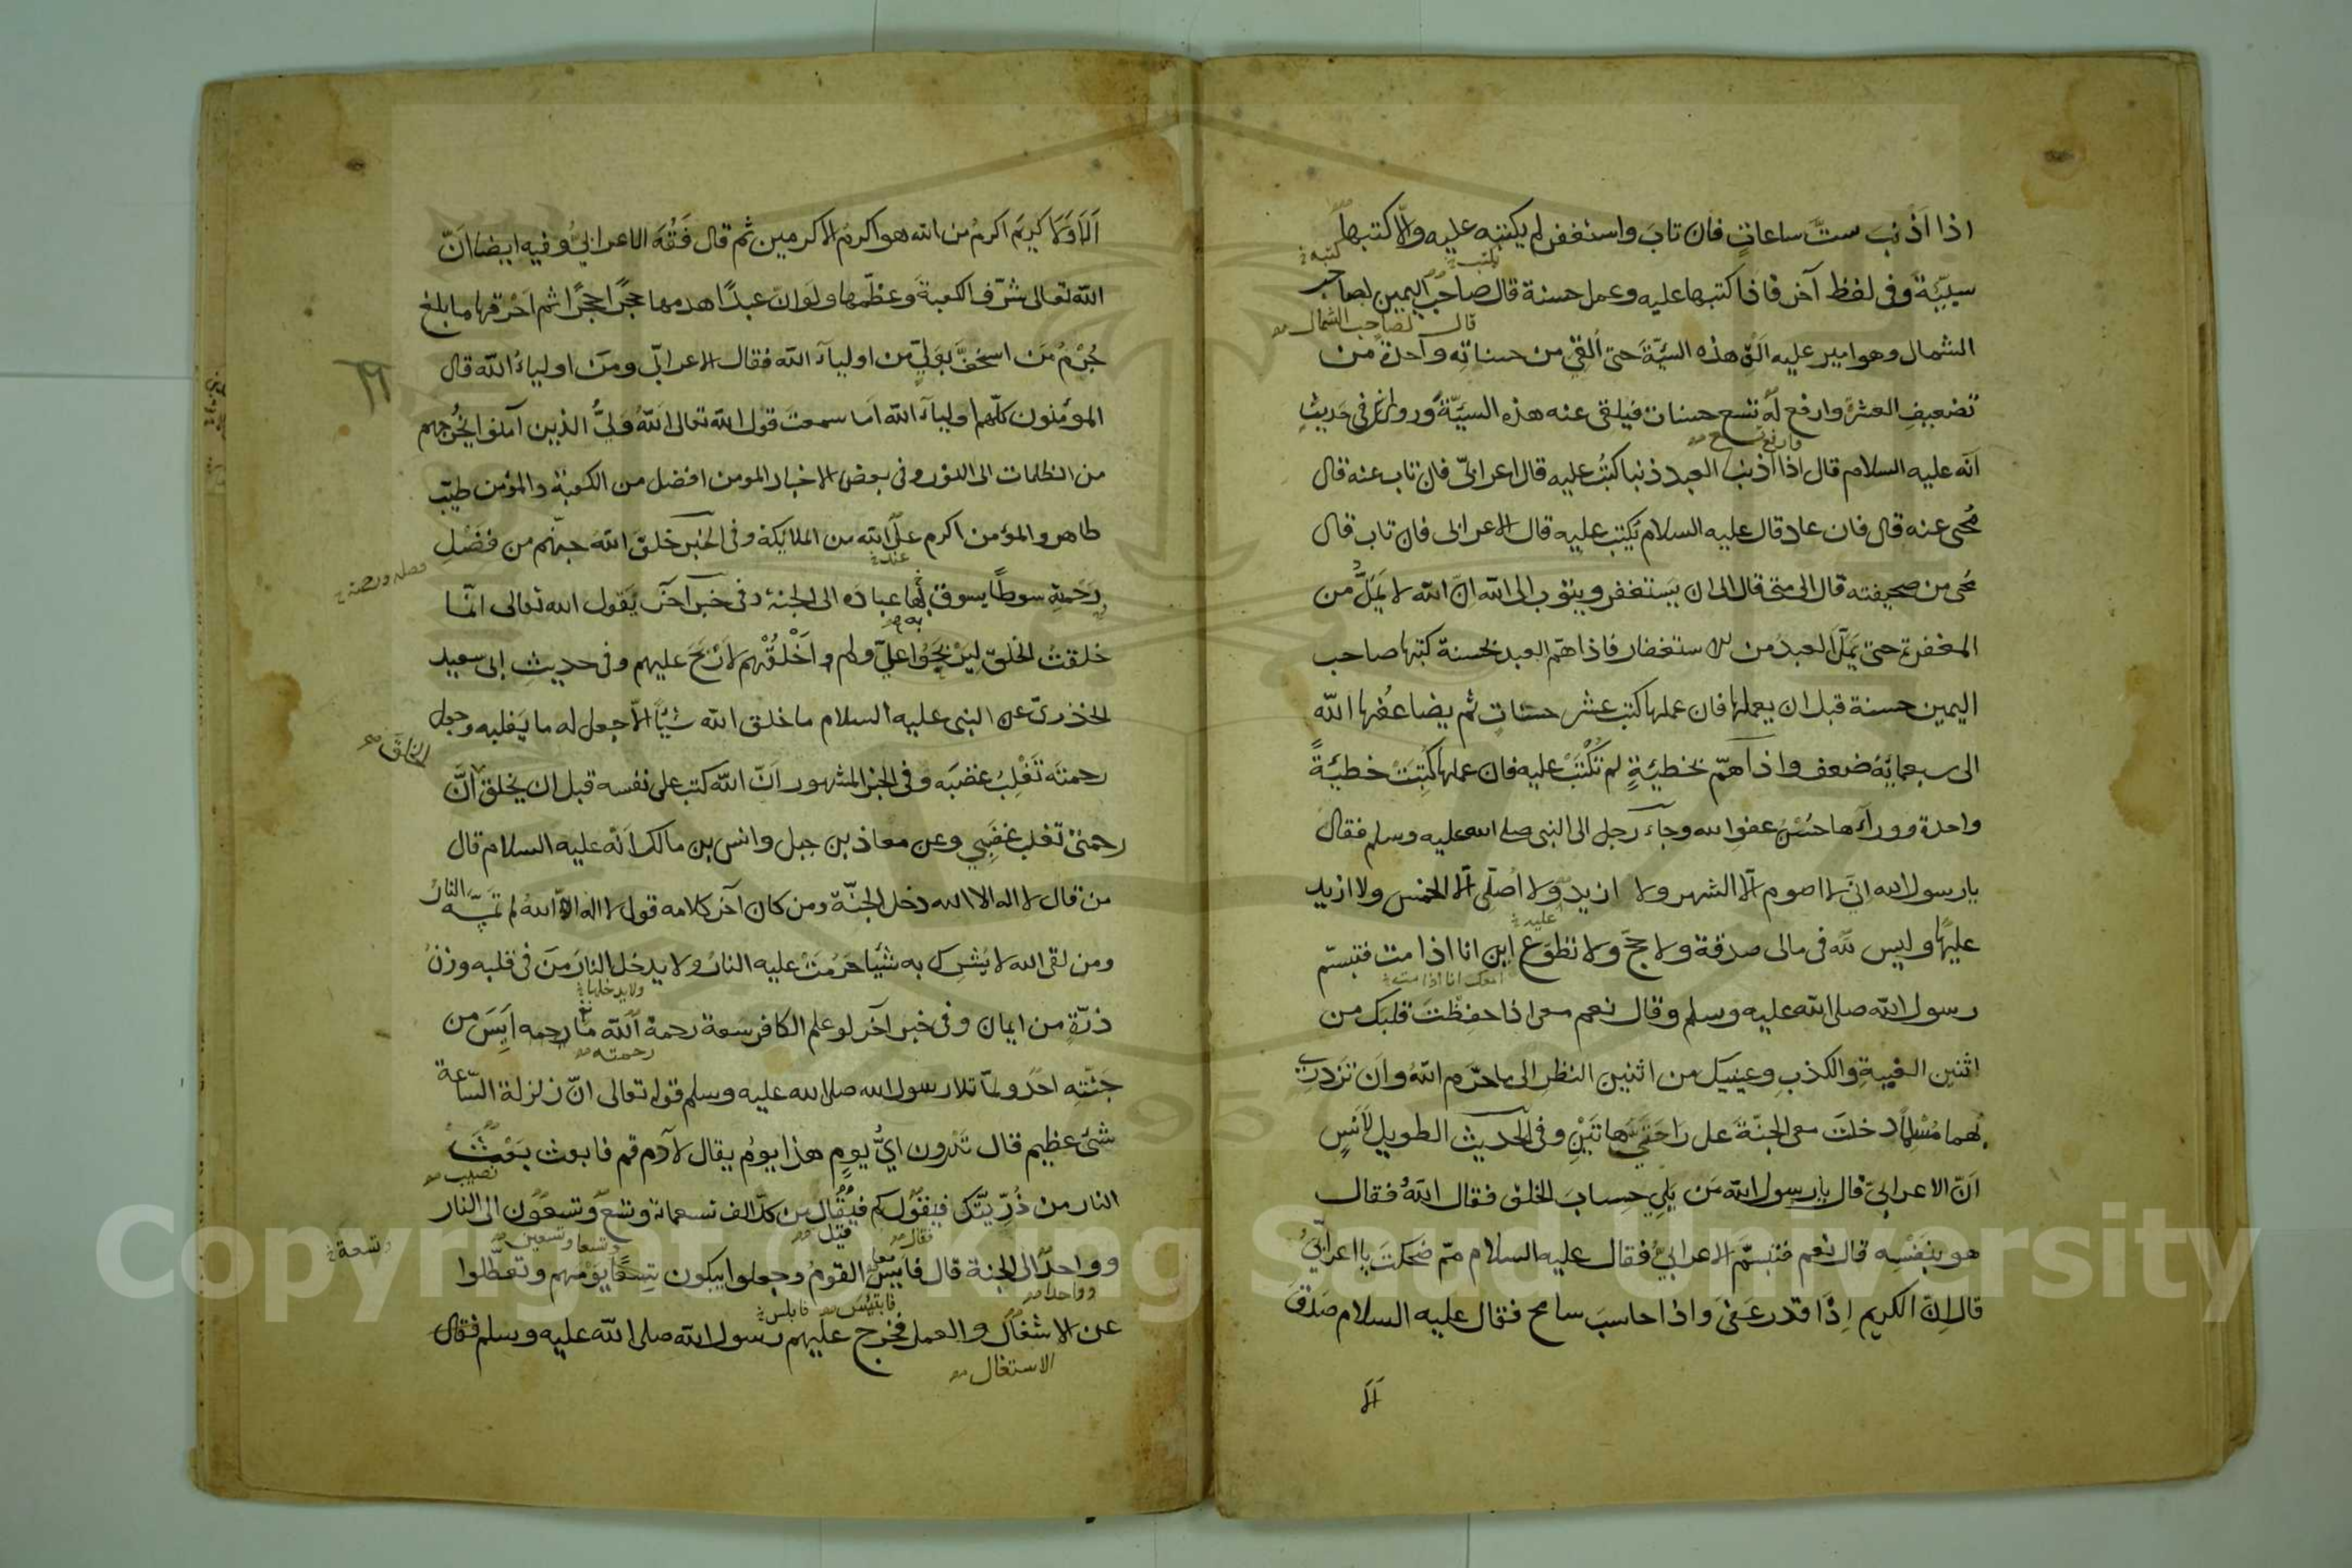 اذا اَذْنبَ ستَّ ساعاتٍ فان تابَ واستغفر لم يكتبه عليه والّا كتبها
كتبه
سيّئةً وفى لفظ آخر فاذا كتبها عليه وعمل حسنة قال صاحب اليمين لصاحب
قال لصاحب الشمال
الشمال وهو امير عليه اَلقِ هذه السيّئةَ حتى اُلقِىَ من حسناتِه واحدةً من
تضعيفِ العشرة وارفع له تسع حسنات فيلقى عنه هذه السيّئةُ وروى انس فى حديثٍ
انّه عليه السلام قال اذا اذنبَ العبد ذنبا كُتبَ عليه قال اعرابىّ فان تاب عنه قال
مُحى عنه قال فان عاد قال عليه السلام يُكتب عليه قال الاعرابى فان تاب قال
مُحى من صحيفته قال الى متى قال الى ان يَستغفر ويتوب الى الله انّ الله لا يَمَلُّ من
المغفرة حتى يَمَلّ العبدُ من الاستغفار فاذا همّ العبد بحسنة كتبها صاحب
اليمين حسنة قبل ان يعملها فان عملها كتب عشر حسنات ثم يضاعُفها الله
الى سبعمائة ضعف واذا همّ بخطيئةٍ لم تُكْتَبْ عليه فان عملها كُتِبَتْ خطيئةً
واحدة ووراءَها حُسْنُ عفوِ الله وجاء رجل الى النبى صلى الله عليه وسلم فقال
يا رسول الله انّى لا اصوم الّا الشهر ولا ازيد ولا اُصلّى الّا الخمس ولا ازيد
عليها وليس لله فى مالى صدقة ولا حجّ ولا تطوّع اين انا اذا مت فتبسّم
امعك انا اذا مت
رسول الله صلى الله عليه وسلم وقال نعم معى اذا حفِظْتَ قلبَك من
اثنين الغيبةِ والكذبِ وعينيك من اثنين النظرِ الى ما حرّم الله وان تَزدرى
بهما مُسْلِمًا دخلتَ معى الجنّةَ على رَاحَتَىَّ هاتَيْنِ وفى الحديث الطويل لاَنَسٍ
اَنّ الاعرابىّ قال يا رسول الله مَن يَلِى حِسابَ الخلق فقال اللهُ فقال
هو بنفْسِه قال نعم فتبسَّمَ الاعرابىُّ فقال عليه السلام ممّ ضحكتَ يا اعرابىُّ
قال اِنّ الكريم اِذَا قدر عَفىَ واذا حاسبَ سامح فقال عليه السلام صَدقَ
اَلَا
اَلَا وَلا كريمَ اكرمُ من الله هو اكرمُ الاكرمين ثم قال فَقُهَ الاعرابىُّ وفيه ايضا انّ
الله تعالى شرّف الكعبةَ وعظّمها ولو انّ عبدًا هدمها حجرًا حجرًا ثم اَحْرقها ما بلغ
جُرْمُ مَن استخفَّ بوَلِىٍّ من اولياء الله فقال الاعرابىّ ومَن اولياءُ الله قال
المؤمنون كلّهم اولياء الله اَما سمعتَ قول الله تعالى اَللهُ وَلِىُّ الذين آمنوا يُخْرجهم
من الظلمات الى النور وفى بعض الاخبار المومن افضل من الكعبة والمؤمن طيّب
طاهر والمؤمن اكرم على الله من الملائكة وفى الخبر خلق الله جهنّم من فَضْلِ
رَحْمتِه سوطًا يسوق بها عبادَه الى الجنة وفى خبر آخَر يَقول الله تعالى انّما
خلقتُ الخلق ليَرْبَحُوا علىّ ولم اَخْلُقْهم لاَرْبَحَ عليهم وفى حديث ابى سعيد
الخذرىّ عن النبى عليه السلام ما خلق الله شَيْأً الّا جعل له ما يَغلبه وجعل
رحمتَه تَغْلِبُ غضبَه وفى الخبر المشهور انّ الله كتب على نفسه قبل ان يخلق انَّ
الخلق
رحمتى تَغلب غضَبِى وعن معاذ بن جبل وانس بن مالك انّه عليه السلام قال
من قال لا اله الا الله دخل الجنّة ومن كان آخر كلامه قول لا اله الا الله لم تَمَسَّه النارُ
ومن لقى الله لا يُشرِك به شيْأ حَرُمَتْ عليه النارُ ولا يدخل النارَ مَن فى قلبه وزنُ
ولا يدخلها
ذرّةٍ من ايمان وفى خبر آخر لو علم الكافر سعة رحمة اللهِ ما رحمه اَيِسَ من
رحمته
جَنّتِه احدٌ ولمّا تلا رسول الله صلى الله عليه وسلم قوله تعالى انّ زلزلة السّاعة
شئ عظيم قال تَدْرون اىُّ يومٍ هذا يومُ يقال لآدم قم فابعث بَعْثَ
نصيب
النار من ذُرّيّتك فيَقُولُ كم فيُقَال من كلّ الف تسعمائة وتسع وتسعون الى النار
وتسعا وتسعين
وواحدٌ الى الجنة قال فابلس القومُ وجعلوا يبكون يومَهم وتعطّلوا
وواحدا
فابتئس فابلس
عن الاشغال والعمل فخرج عليهم رسول الله صلى الله عليه وسلم فقال
الاستغال
Copyright © King Saud University